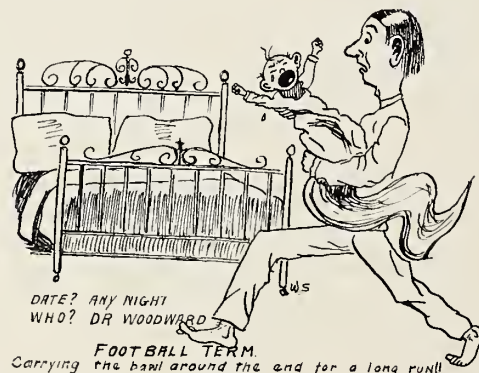 WS
DATE? ANY NIGHT
WHO? DR WOODWARD
FOOTBALL TERM.
Carrying the bawl around the end for a long run!!